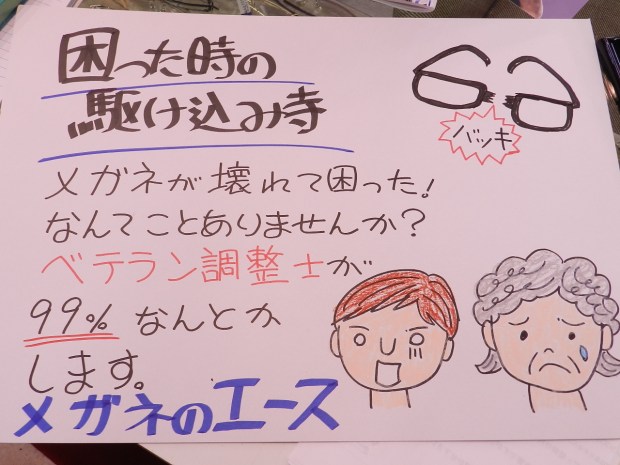 困った時の
駆け込み寺
バッキ
メガネが壊れて困った!
なんてことありませんか?
ベテラン調整士が
99%なんとか
します。
メガネのエース